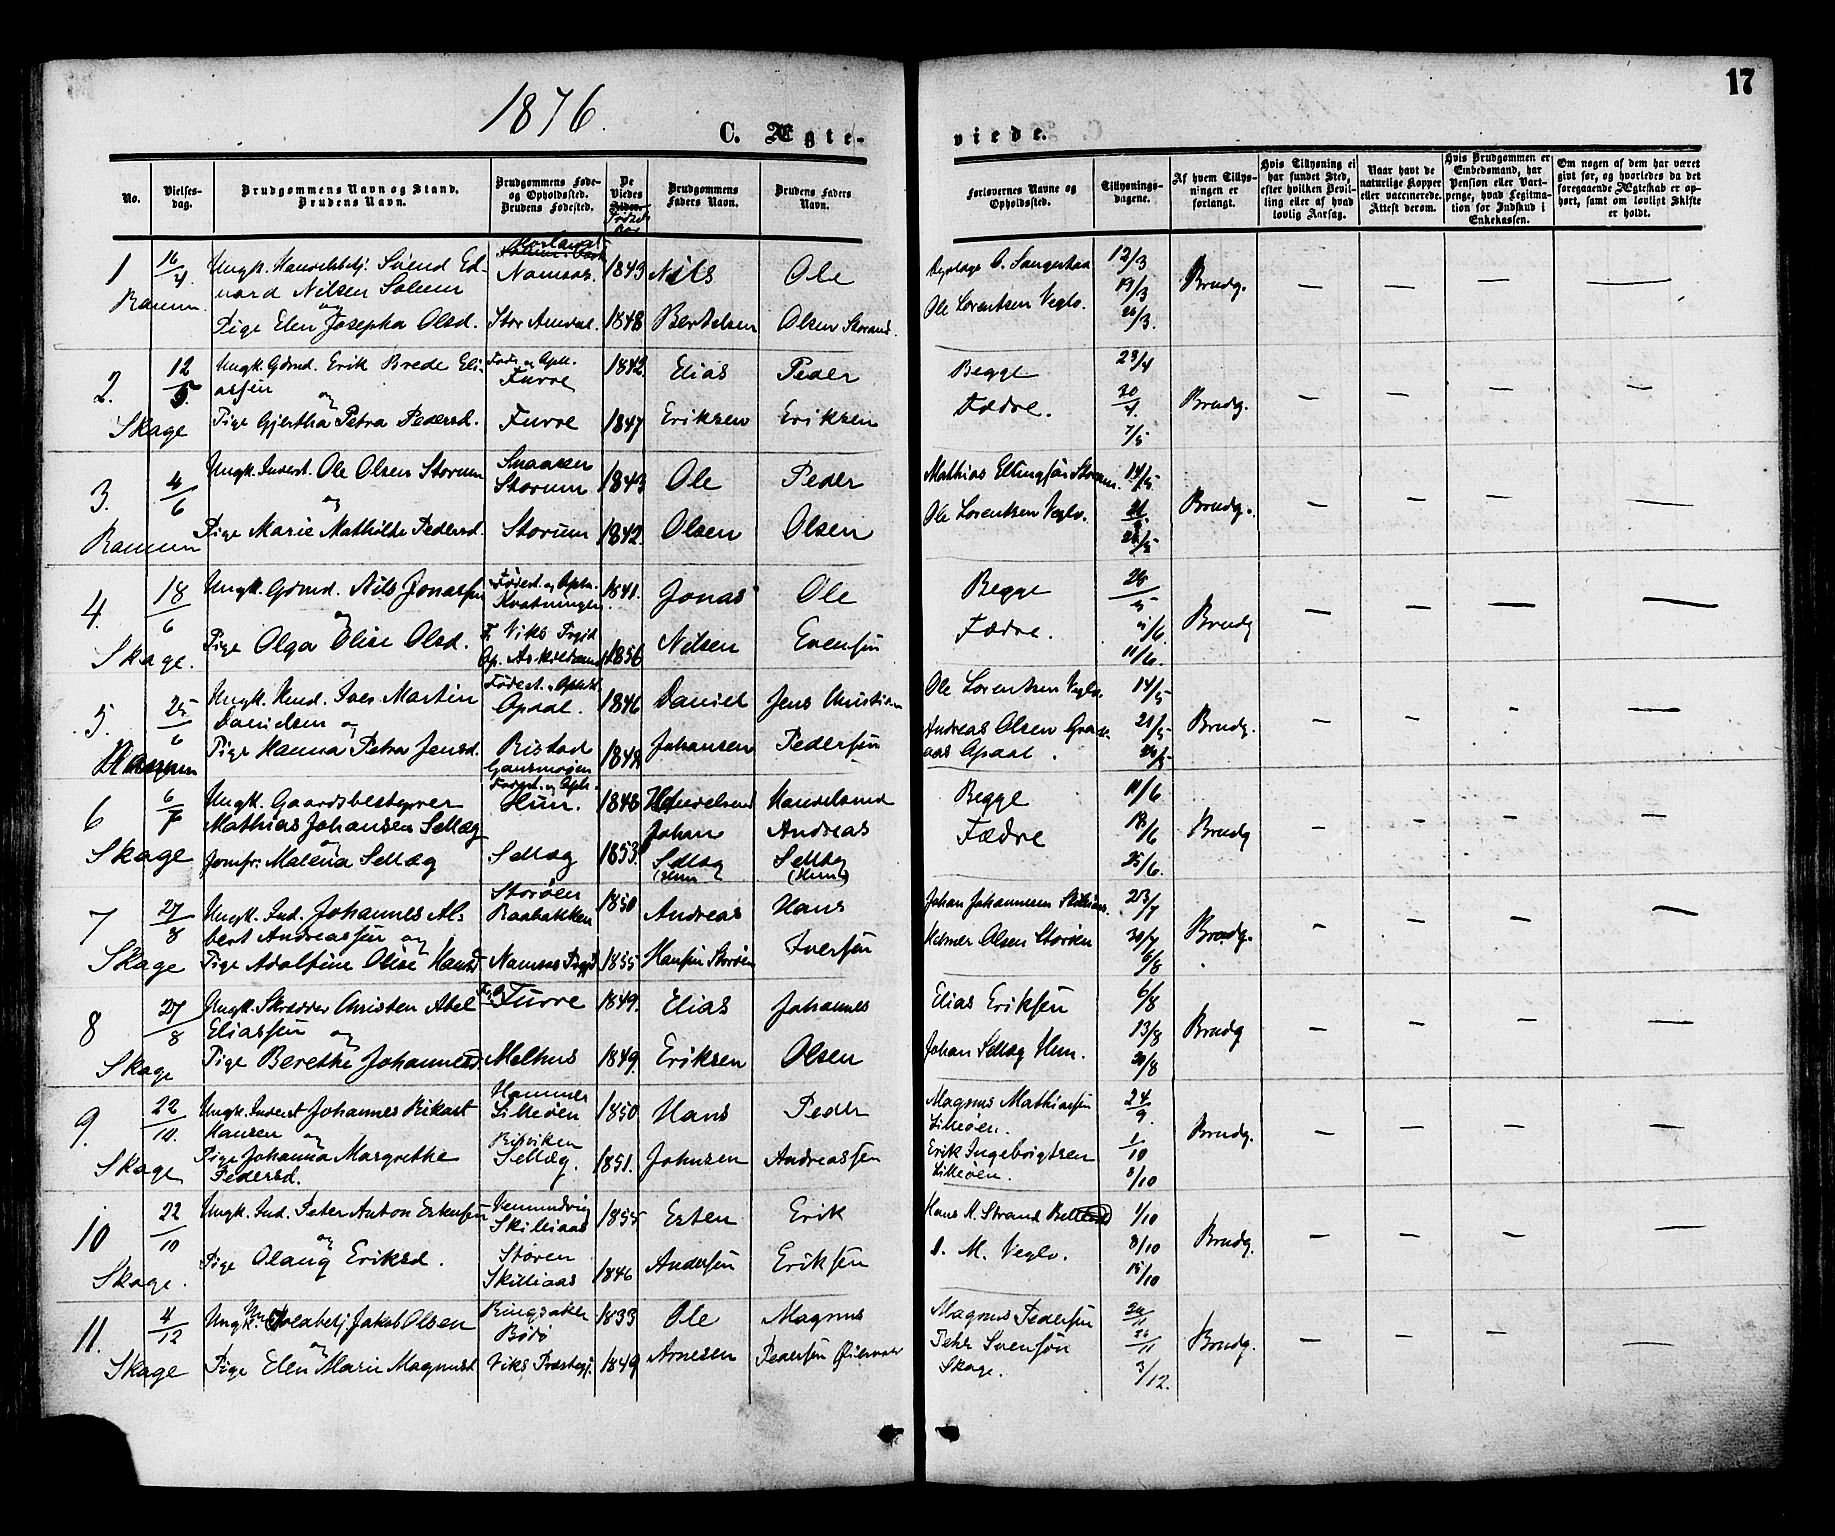 1876.
17
C. Ægte-
viede.
No.
Vielses-
dag.
Brudgommens Navn og Stand.
Brudens Navn.
Brudgommens Føde-
og Opholdssted.
Brudens Fødested.
De
Viedes
Fødsels
Aar
Brudgommens
Faders Navn.
Brudens Faders
Navn.
Forlovernes Navne og
Opholdssted.
Tillysnings-
dagene.
Af hvem Tillys-
ningen er
forlangt.
Hvis Tillysning ei
har fundet Sted,
efter hvilken Bevil-
ling eller af hvad
lovlig Aarsag.
Naar havt de
naturlige Kopper
eller vaccinerede.
Attest derom.
Hvis Brudgommen er
Embedsmand, har
Pension eller Vart-
penge, hvad Legitima-
tion for Indskud i
Enkekassen.
Om nogen af dem har været
givt før, og hvorledes da det
foregaaende Ægteskab er op-
hørt, samt om lovligt Skifte
er holdt.
1 16/4 Ungk. Handelsbetj. Svend Ed- Namsos. 1843 Nils Ole 12/3
Ranum vard Nilsen Solem Ole Lorentsen Veglo. 19/3 Brudg. — — — —
og
Pige Elen Josepha Olsd. 1848 Bertelsen Olsen 26/3.
2. 12/5 Ungk. Gdmd. Erik Brede Eli- Føde og Oph. Furre 1842 Elias Peder Begge 23/4
assen
og 30/4. Brudg. — — — —
Skage Pige Gjertha Petra Pedersd. Furre 1847 Eriksen Eriksen Fædre. 7/5
3. 4/6 Ungk. Inderst. Ole Olsen Storum Snaasen Storum 1843 Ole Peder Mathias 14/5
og Ole Lorentsen Veglo. 21/5 Brudg. — — — —
Ranum Pige Marie Mathilde Pedersd. Storum 1842. Olsen Olsen 28/5
4. 18/6 Ungk. Gdmd. Nils Jonassen Fødest. og Oph. 1841. Jonas Ole Begge 28/5
og Brudg — — — —
Skage. Pige Olga Elise Olsd. F. Viks Prgjd 1856 Nilsen Evensen Fædre. 11/6.
5. 25/6 Ungk. Iver Martin Fødest. og Opholdst. Opdal. 1846 Daniel Jens Christian Ole Lorentsen Veglo. 14/5
Danielsen og Andreas Olsen 21/5 Brudg. — — — —
Ranum Pige Hanna Petra Jensd. Ristad 1848 Johansen Pedersen Opdal. 28/5
6 6/7 Ungk. Gaardsbestyrer Fødest. og Oph. Hun. 1848 Handelsmd Handelsmd Begge 11/6
Mathias Johansen Sellæg Johan Andreas Fædre 18/6 Brudg — — — —
og
Skage Jomfr. Malena Sellæg Sellæg 1853. Sellæg (Hun) Sellæg (Hun) 25/6.
7 27/8 Ungk. Ind. Johannes Al- Storøen 1850 Andreas Hans Johan Johannesen 23/7
bert Andreassen og Helmer Olsen Storøen 30/7 Brudg. — — — —
Skage Pige Adolfine Olise Hansd. Namsos Prgjd 1855 Hansen Storøen Iversen 6/8
8 27/8 Ungk. Skrædder Christen Abel Furre 1849. Elias Johannes Elias Eriksen 6/8
Eliassen og 13/8 Brudg — — — —
Skage Pige Berethe Johannesd. Melhus 1849. Eriksen Olsen Johan Sellæg Hun. 20/8
9. 22/10. Ungk. Inderst Johannes Rikart Hammer Lilleøen 1850 Hans Peder Magnus Mathiassen 24/9.
Hansen og Lilleøen. 1/10 Brudg. — — — —
Skage Pige Johanna Margrethe Sellæg. 1851. Johnsen Andreassen Erik Ingebrigtsen
Pedersd. Lilleøen. 8/10
10 22/10 Ungk. Ind. Peter Anton Estensen Vemundvig Skilliaas 1855 Esten Erik Hans M. Strand 1/10
og O. M. Veglo. 8/10 Brudg. — — — —
Skage. Pige Olaug Eriksd. Støren Skilliaas 1846 Andersen Eriksen 15/10
11. 4/12 Ungk. Jakob Olsen Ringsaker Bodø 1833 Ole Magnus Magnus Pedersen
og Peder Svensen 26/11 Brudg. — — — —
Skage Pige Elen Marie Magnusd. Viks Præstegj. 1849 Arnesen Pedersen Skage. 3/12.